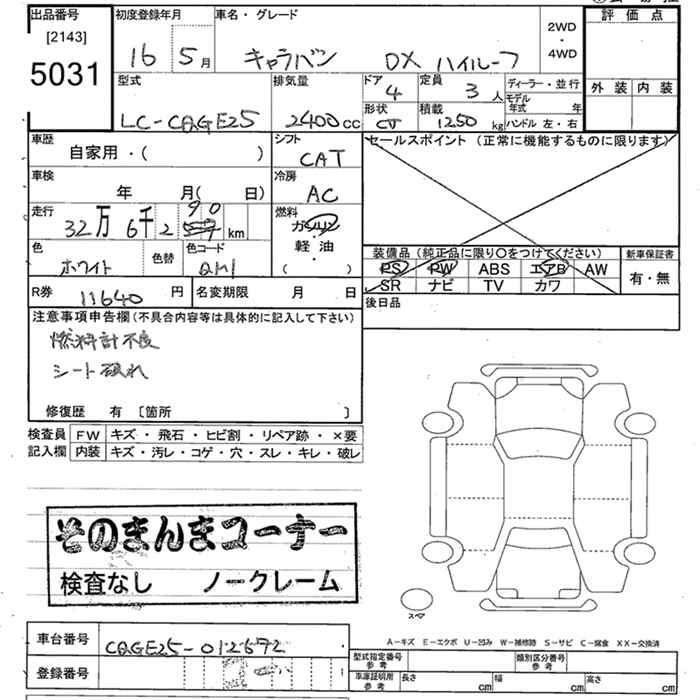 出品番号 初度登録年月 車名・グレード 2WD・4WD 評価点
[2143]
5031
16 5月 キャラバン DX ハイルーフ
外装 内装
型式 排気量 ドア 定員 ディーラー・並行
LC-CAGE25 2400cc 4 3人 モデル年式 年
形状 積載 ハンドル 左・右
1250kg
車歴 シフト セールスポイント (正常に機能するものに限ります)
自家用・( ) CAT
車検 冷房
年 月( 日) AC
走行 燃料
32万 6千 2 90 km ガソリン
軽油
( )
色 色替 色コード
ホワイト QM1
装備品 (純正品に限り○をつけてください) 新車保証書
PS PW ABS エアB AW 有・無
SR ナビ TV カワ
R券 11640円 名変期限 月 日 後日品
注意事項申告欄 (不具合内容等は具体的に記入して下さい)
燃料計不良
シート破れ
修復歴 有 〔箇所 〕
検査員 FW キズ・飛石・ヒビ割・リペア跡・×要
記入欄 内装 キズ・汚レ・コゲ・穴・スレ・キレ・破レ
そのまんまコーナー
検査なし ノークレーム
スペア
A−キズ E−エクボ U−凹み W−補修跡 S−サビ C−腐食 XX−交換済
車台番号 CAGE25-012692
登録番号
型式指定番号 参考 類別区分番号 参考
車庫証明用 参考 長さ cm 幅 cm 高さ cm